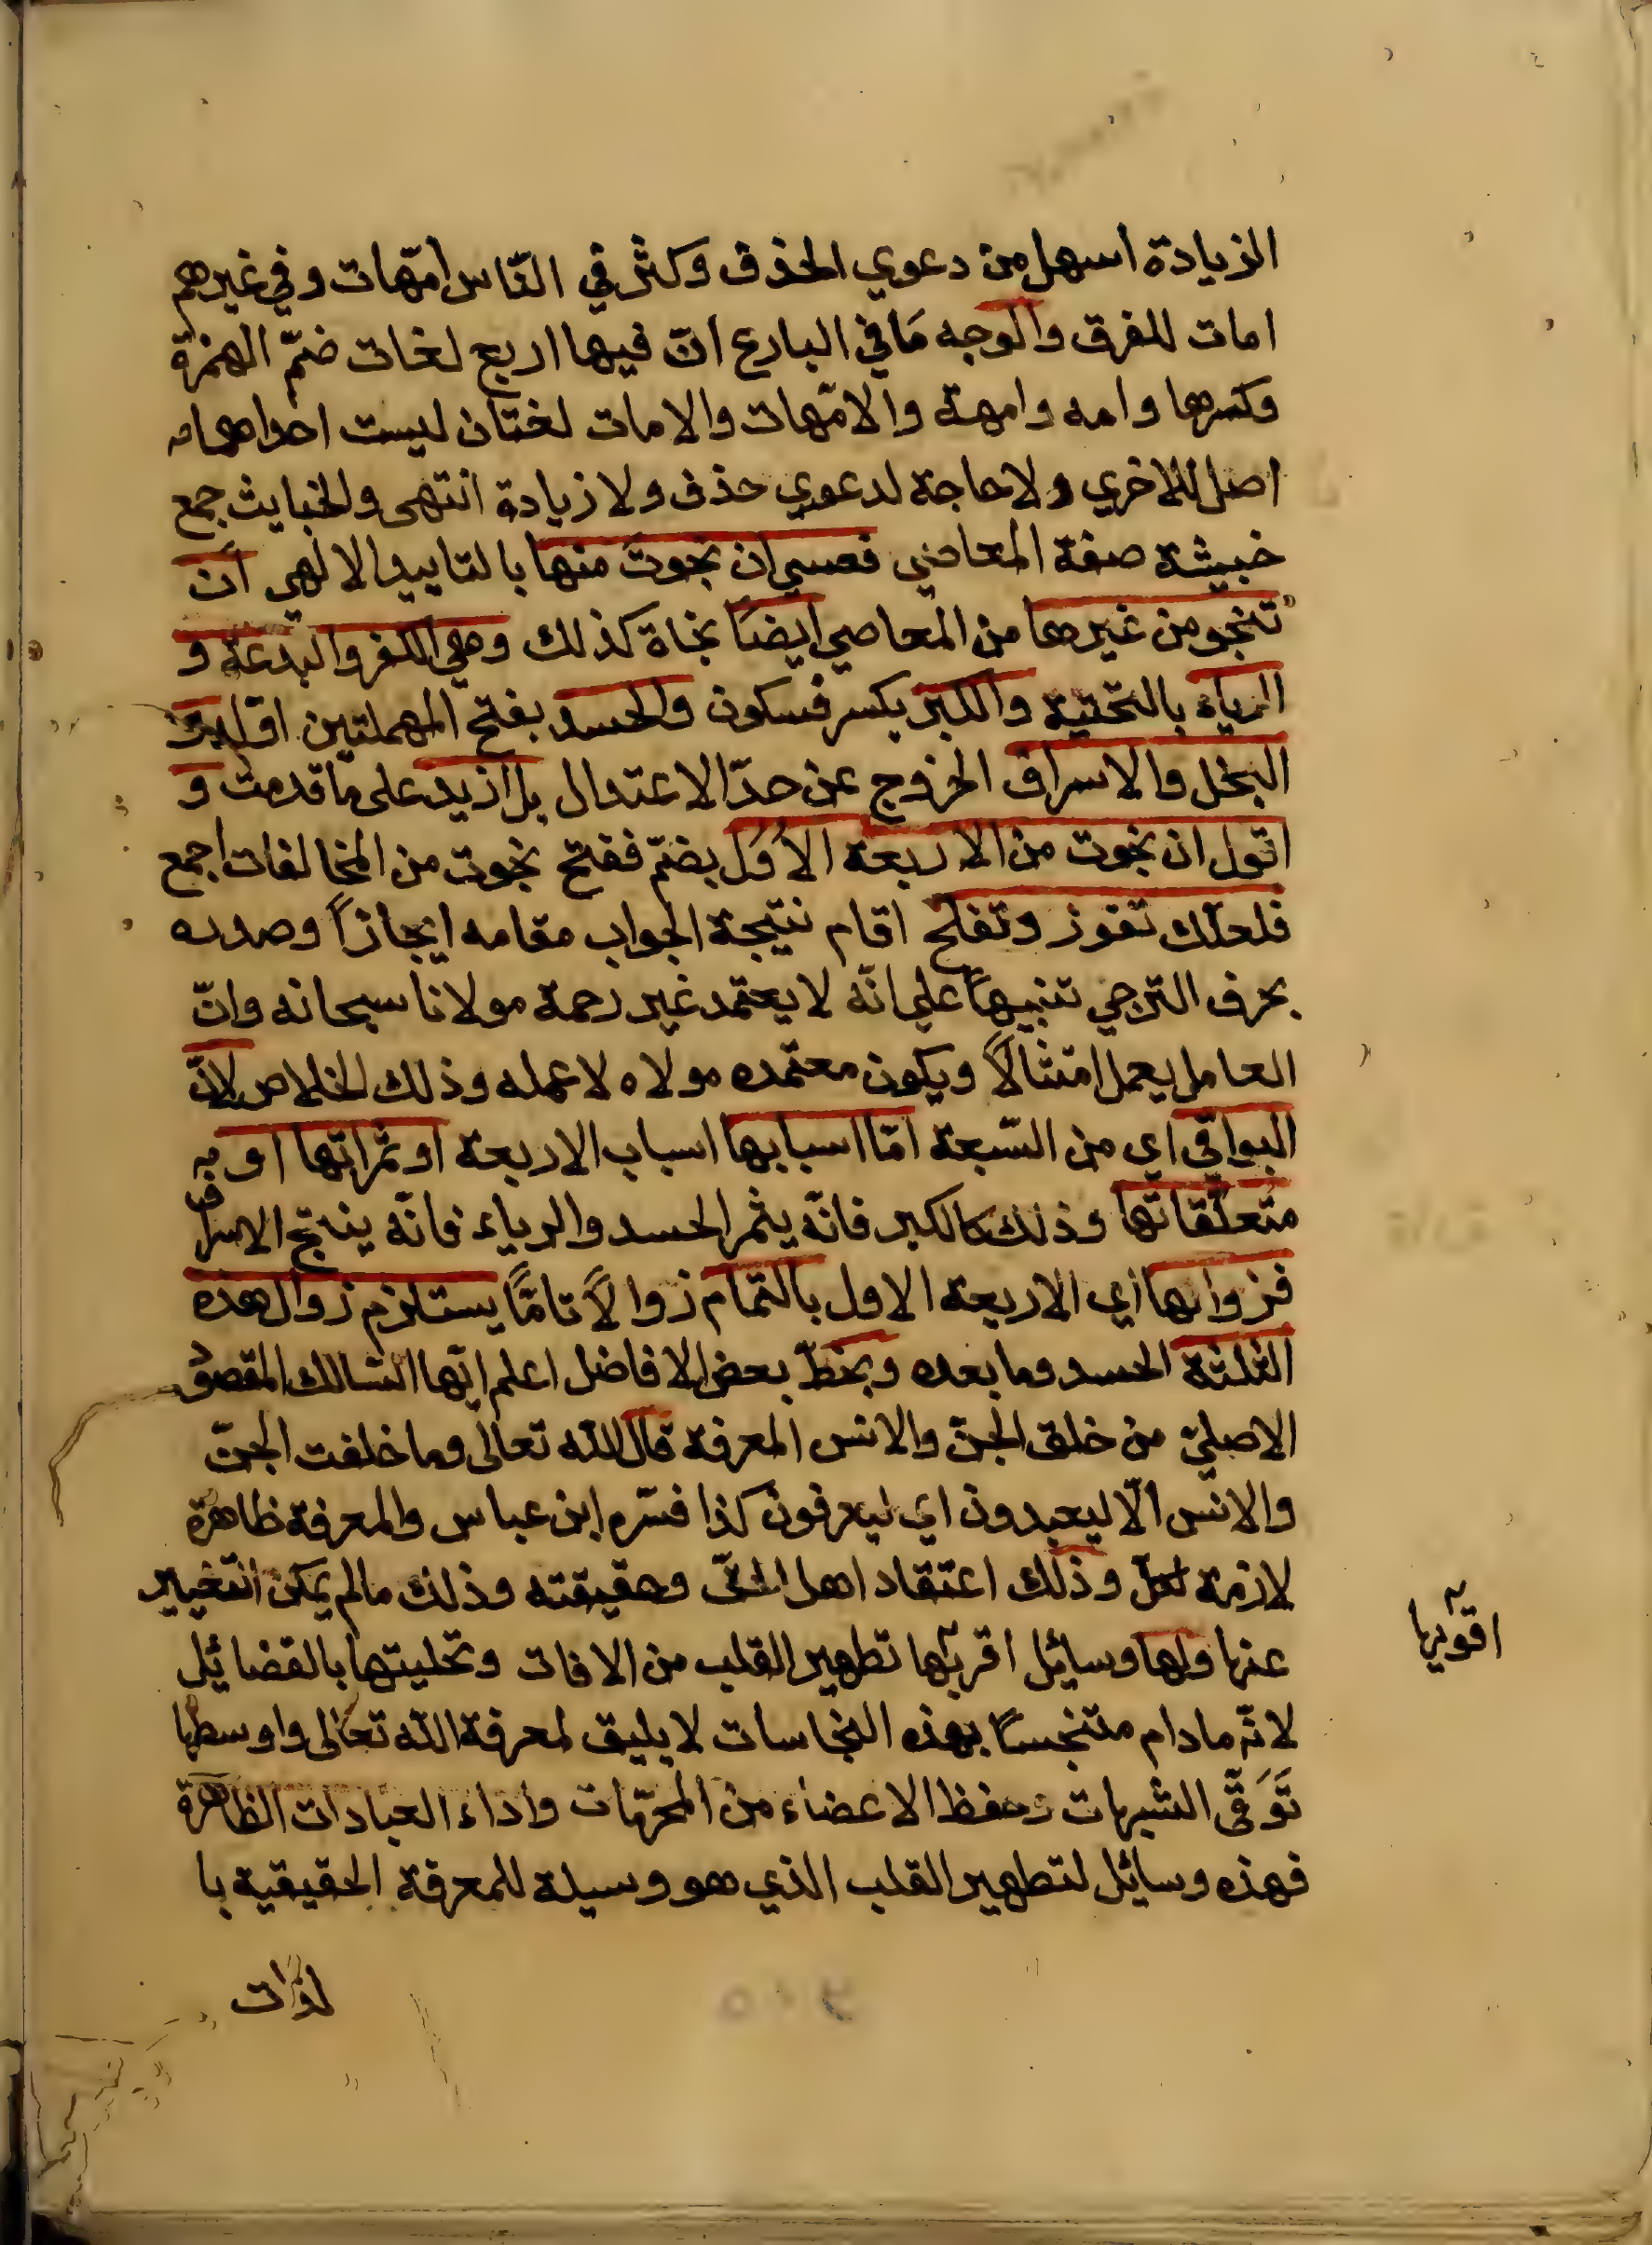 الزيادة اسهل من دعوي الحذف وكثر في النّاس امّهات وفي غيرهم
امات للفرق والوجه مَا في البارع انّ فيها اربع لغات ضمّ الهمزة
وكسرها وامه وامهة والامّهات والامات لغتان ليست احداهما
اصل للاخري ولا حاجة لدعوي حذف ولا زيادة انتهى والخبايث جمع
خبيثة صفة المعاصي فعسي ان نجوتَ منها بالتاييد الالهي ان
تنجو من غيرها من المعاصي ايضًا نجاة كذلك وهي الكفر والبدعة و
الرياء بالتحتية والكبر بكسر فسكون والحسد بفتح المهملتين
البخل والاسراف الخروج عن حدّ الاعتدال بل ازيد على مّا قدمت و
اقول ان نجوت من الاربعة الاُوَل بضمّ ففتح نجوت من المخالفات اجمع
فلعلّك تفوز وتفلح اقام نتيجة الجواب مقامه ايجازاً وصدره
بحرف الترجي تنبيهاً علي انّه لا يعتمد غير رحمة مولانا سبحانه وانّ
العامل يعمل امتثالاً ويكون معتمده مولاه لا عمله وذلك الخلاص لانّ
البواقي اي من السّبعة امّا اسبابها اسباب الاربعة او ثمراتها او
متعلّقاتها وذلك كالكبر فانّه يثمر الحسد والرياء فانّه ينتج الاسراف
فزوالها اي الاربعة الاول بالتمام زوالاً تامًّا يستلزم زوال هذه
الثلثة الحسد وما بعده وبخطّ بعض الافاضل اعلم ايّها السّالك المقصود
الاصليّ من خلق الجنّ والانس المعرفة قال الله تعالى وما خلقت الجنّ
والانس الّا ليعبدون اي ليعرفون كذا فسّره ابن عباس والمعرفة ظاهرة
لازمة لكلّ وذلك اعتقاد اهل الحقّ وحقيقته وذلك مالم يمكن التغيير
عنها ولها وسائل اقربها تطهير القلب من الافات وتحليتها بالفضائل
لانّه مادام متنجسًا بهذه النجاسات لا يليق لمعرفة الله تعالى واوسطها
تَوَقّي الشبهات وحفظ الاعضاء من المحرّمات واداء العبادات الظاهرة
فهذه وسائل لتطهير القلب الذي هو وسيلة للمعرفة الحقيقية با
لذّات
اقويها